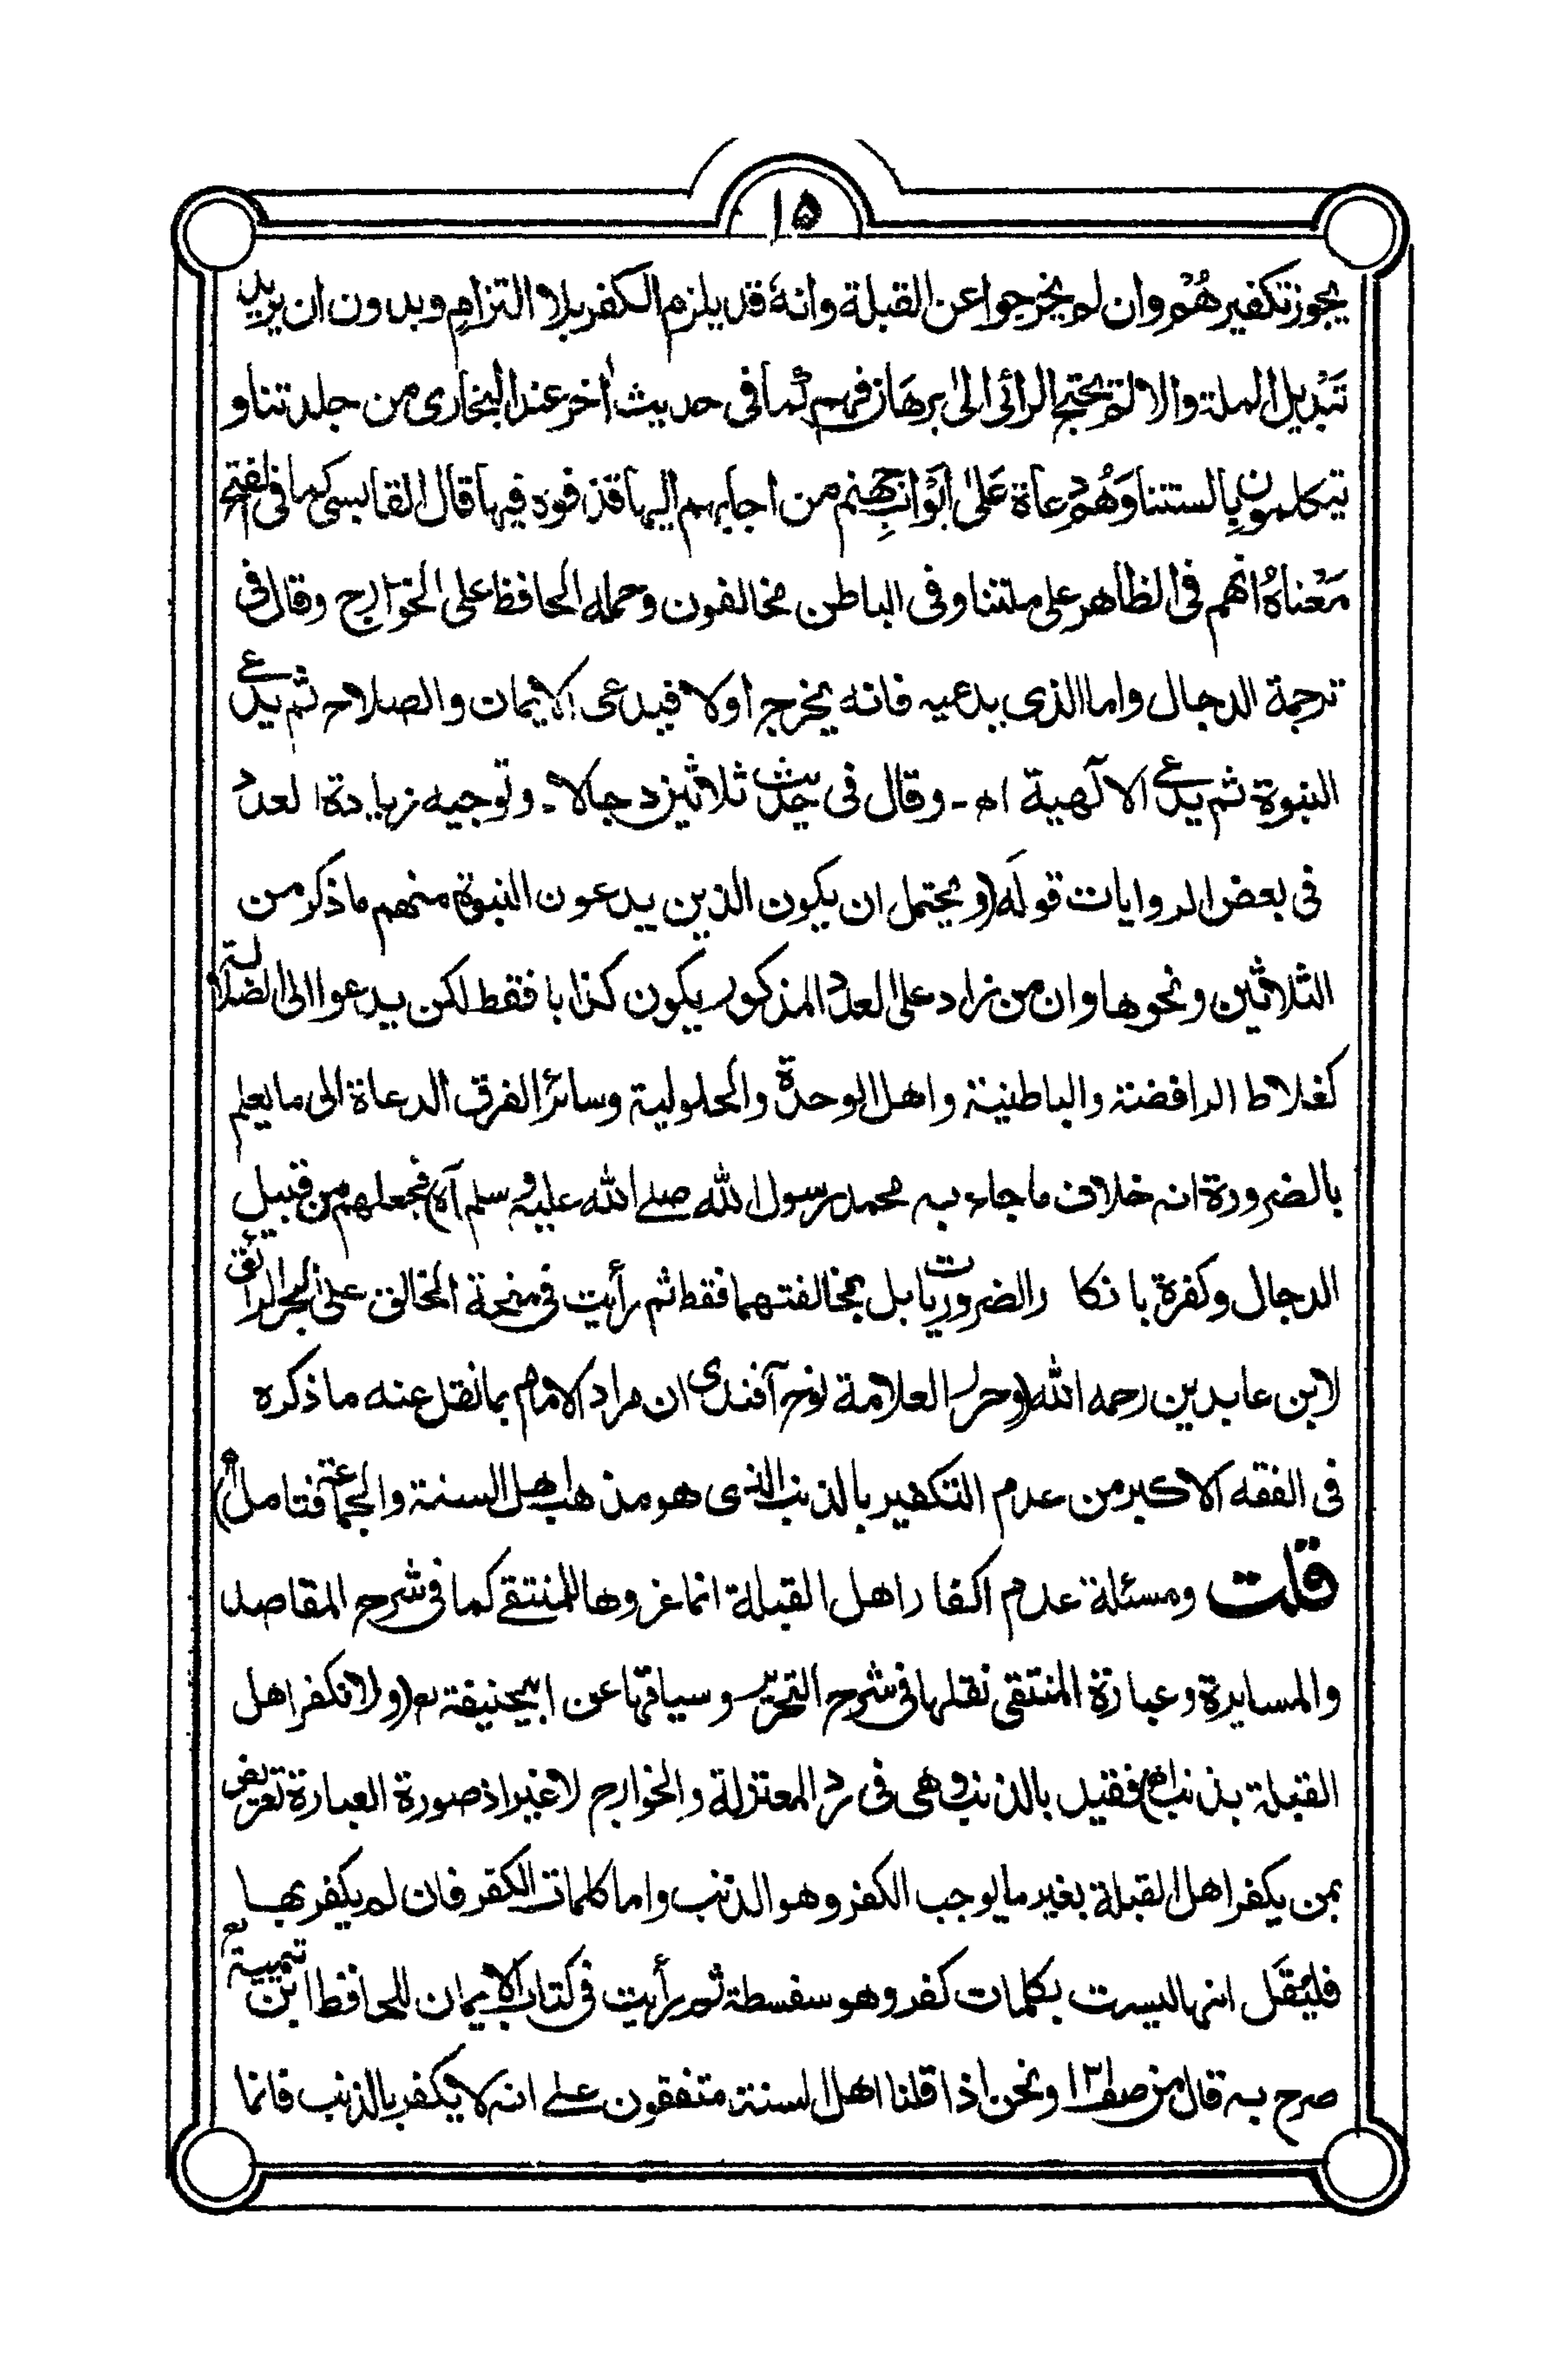 ۱۵
يجوز تكفيرهُمْ وان لم يخرجوا عن القبلة وانهٗ قد يلزم الكفر بلا التزامٍ وبدون ان يريد
تَبْديل الملة والا لمْ يحتج الرائى الىٰ برهان فهم كما فى حديث اٰخر عند البخارى من جلدتنا و
يتكلمون بالستنا وَهُمْ دعاة عَلىٰ ابْوابِ جهنم من اجابهم اليها قذفوه فيها قال القابسى كما فى الفتح
مَعْناهُ انهم فى الظاهر على ملتنا وفى الباطن مخالفون وحمله الحافظ على الخوارج وقال فى
ترجمة الدجال واما الذى يدعيه فانه يخرج اولا فيدعى الايمان والصلاح ثم يدعى
النبوة ثم يدعى الالٓهية اه - وقال فى حديث ثلاثين دجالا - وتوجيه زيادة العدد
فى بعض الروايات قولهٗ (ويحتمل ان يكون الذين يدعون النبوة منهم ما ذكر من
الثلاثين ونحوها وان من زاد على العدد المذكور يكون كذابا فقط لكن يدعوا الى الضلالة
كغلاط الرافضة والباطنية واهل الوحدة والحلولية وسائر الفرق الدعاة الى ما يعلم
بالضرورة انه خلاف ما جاء به محمد رسول الله صلى الله عليه وسلم آه) فجعلهم من قبيل
الدجال وكفرة بانكار الضروريات بل بمخالفتهما فقط ثم رأيت فى منحة الخالق على البحر الرائق
لابن عابدين رحمه الله (وحرر العلامة نوح آفندى ان مراد الامام بما نقل عنه ما ذكره
فى الفقه الاكبر من عدم التكفير بالذنب الذى هو مذهب اهل السنة والجماعة فتامل اه)
قلت ومسئلة عدم اكفار اهل القبلة انما عزوها للمنتقى كما فى شرح المقاصد
والمسايرة وعبارة المنتقى نقلها فى شرح التحرير وسياقها عن ابيحنيفة رح (ولا نكفر اهل
القبلة بذنب اه) فقيل بالذنب وهى فى رد المعتزلة والخوارج لا غير اذ صورة العبارة تعريض
بمن يكفر اهل القبلة بغير ما يوجب الكفر وهو الذنب واما كلمات الكفر فان لم يكفر بها
فليُقَل انها ليست بكلمات كفر وهو سفسطة ثم رأيت فى كتاب الايمان للحافظ ابن تيمية رح
صرح به قال من صفـ۱۲۱ ونحن اذا قلنا اهل السنة متفقون على انه لا يكفر بالذنب فانما